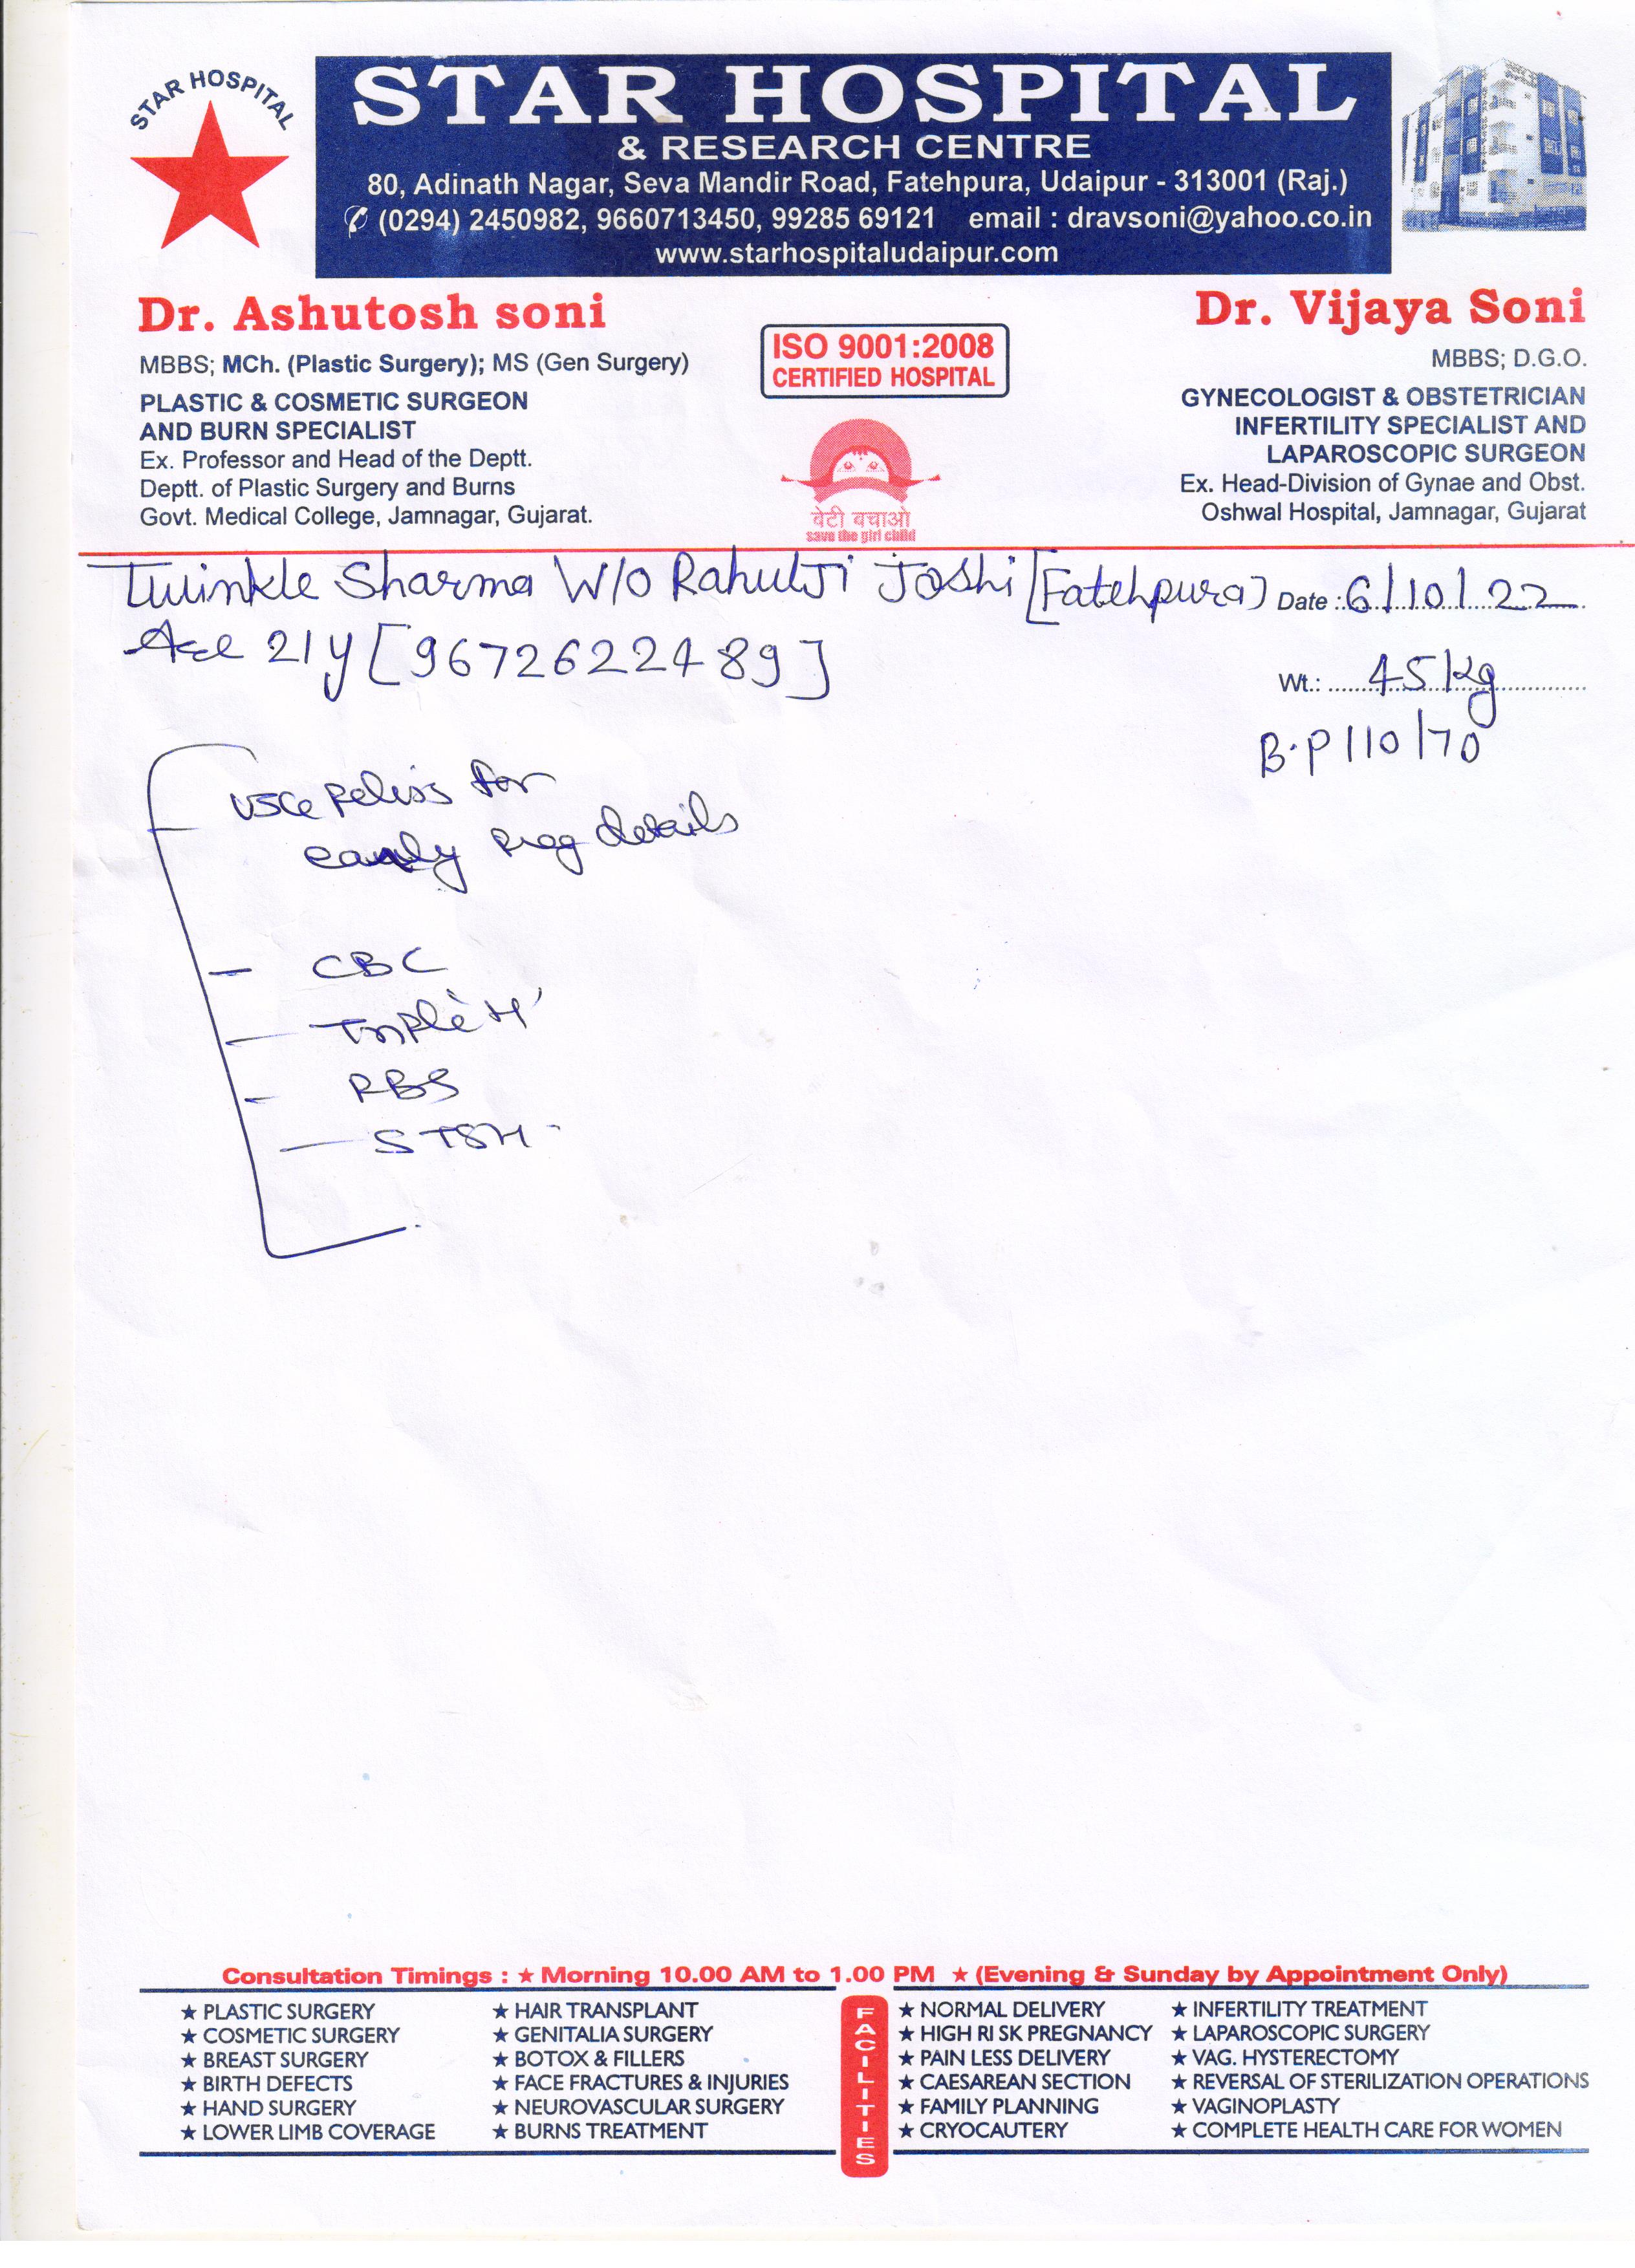 STAR HOSPITAL
STAR HOSPITAL
& RESEARCH CENTRE
80, Adinath Nagar, Seva Mandir Road, Fatehpura, Udaipur - 313001 (Raj.)
✆ (0294) 2450982, 9660713450, 99285 69121 email : dravsoni@yahoo.co.in
www.starhospitaludaipur.com
Dr. Ashutosh soni
MBBS; MCh. (Plastic Surgery); MS (Gen Surgery)
PLASTIC & COSMETIC SURGEON
AND BURN SPECIALIST
Ex. Professor and Head of the Deptt.
Deptt. of Plastic Surgery and Burns
Govt. Medical College, Jamnagar, Gujarat.
ISO 9001:2008
CERTIFIED HOSPITAL
बेटी बचाओ
save the girl child
Dr. Vijaya Soni
MBBS; D.G.O.
GYNECOLOGIST & OBSTETRICIAN
INFERTILITY SPECIALIST AND
LAPAROSCOPIC SURGEON
Ex. Head-Division of Gynae and Obst.
Oshwal Hospital, Jamnagar, Gujarat
Twinkle Sharma W/O RahulJi Joshi [Fatehpura] Date : 6/10/22
Age 21y [9672622489]
Wt.: 45kg
B.P 110/70
Pelvis for
early preg details
- CBC
- Triple 'H'
- RBS
- S TSH
Consultation Timings : ★ Morning 10.00 AM to 1.00 PM ★ (Evening & Sunday by Appointment Only)
★ PLASTIC SURGERY
★ COSMETIC SURGERY
★ BREAST SURGERY
★ BIRTH DEFECTS
★ HAND SURGERY
★ LOWER LIMB COVERAGE
★ HAIR TRANSPLANT
★ GENITALIA SURGERY
★ BOTOX & FILLERS
★ FACE FRACTURES & INJURIES
★ NEUROVASCULAR SURGERY
★ BURNS TREATMENT
FACILITIES
★ NORMAL DELIVERY
★ HIGH RI SK PREGNANCY
★ PAIN LESS DELIVERY
★ CAESAREAN SECTION
★ FAMILY PLANNING
★ CRYOCAUTERY
★ INFERTILITY TREATMENT
★ LAPAROSCOPIC SURGERY
★ VAG. HYSTERECTOMY
★ REVERSAL OF STERILIZATION OPERATIONS
★ VAGINOPLASTY
★ COMPLETE HEALTH CARE FOR WOMEN